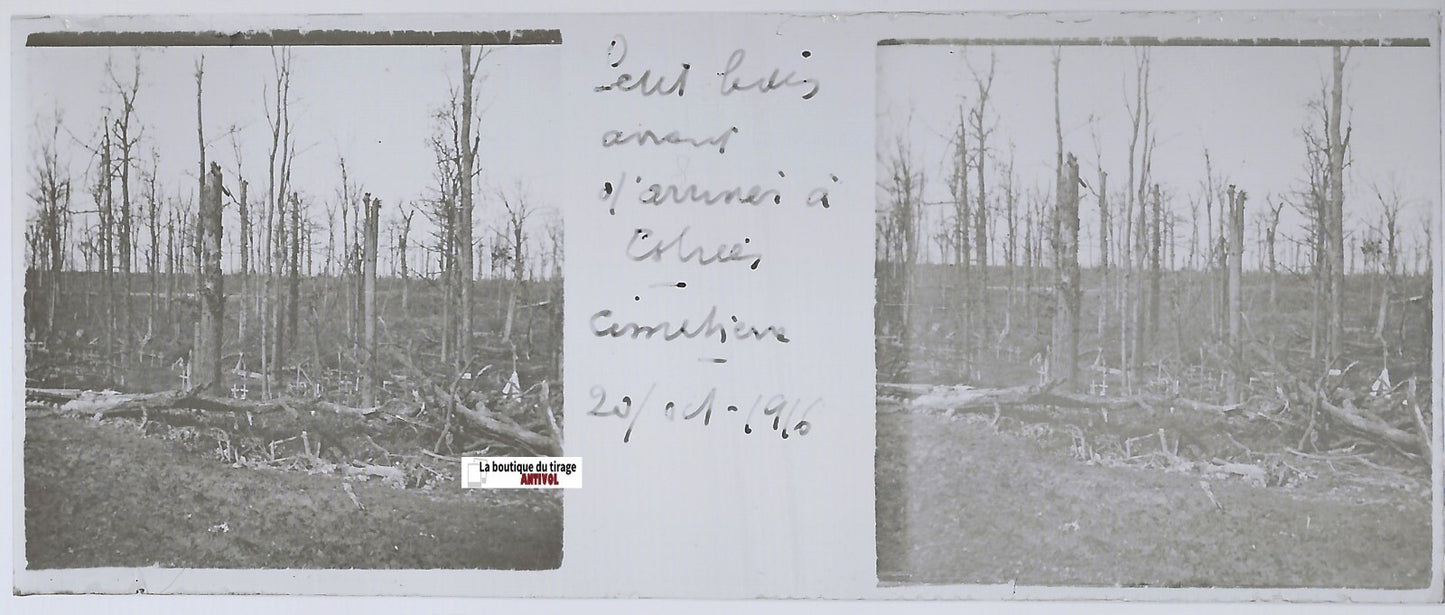 Petit bois
avant
d'arriver à
Cimetière
20/oct-1916
La boutique du tirage
ANTIVOL